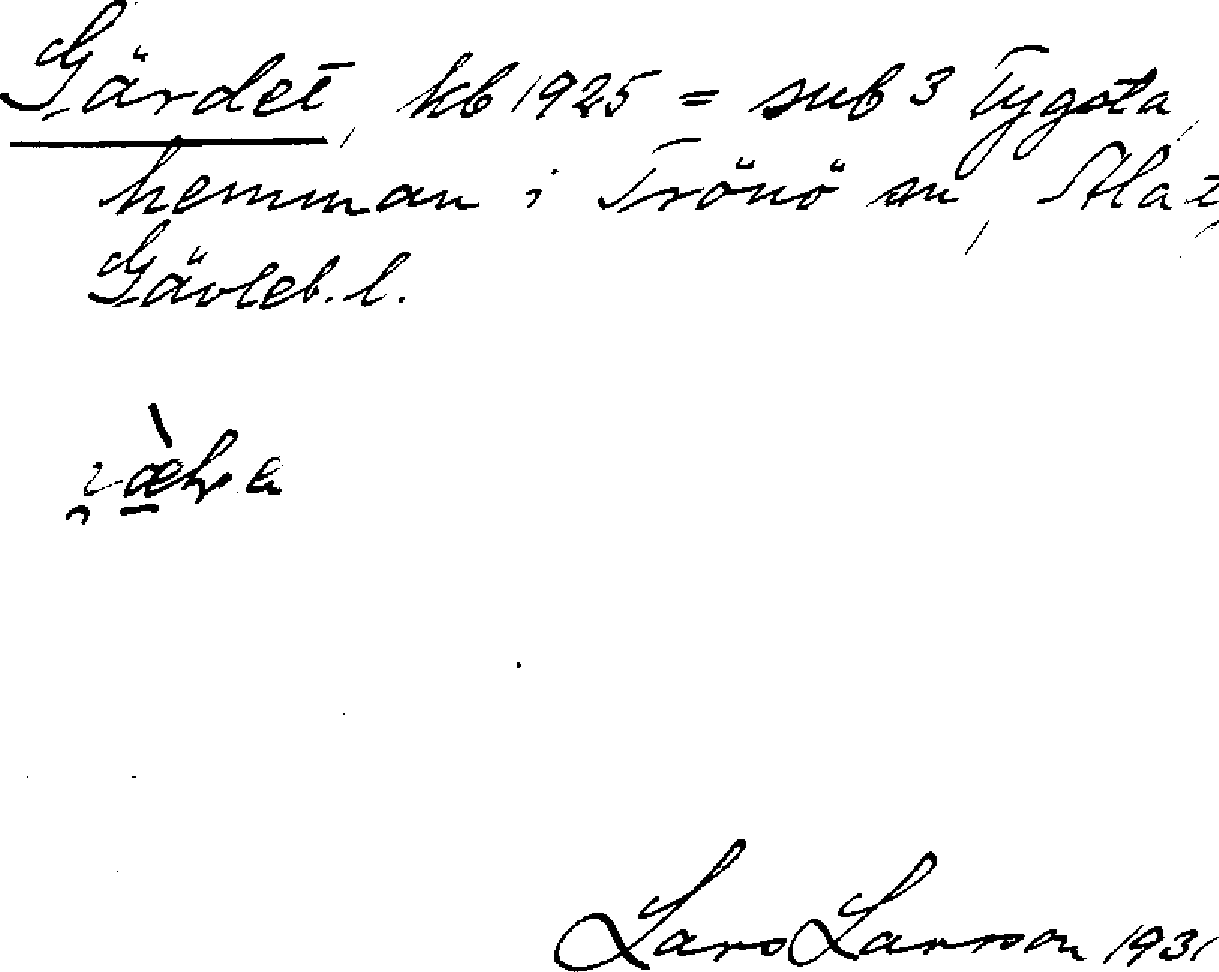 Gärdet, kb 1925 = sub 3 Tygsta,
hemman i Trönö sn, Ala z,
Gävleb. l.
Lars Larsson 1931